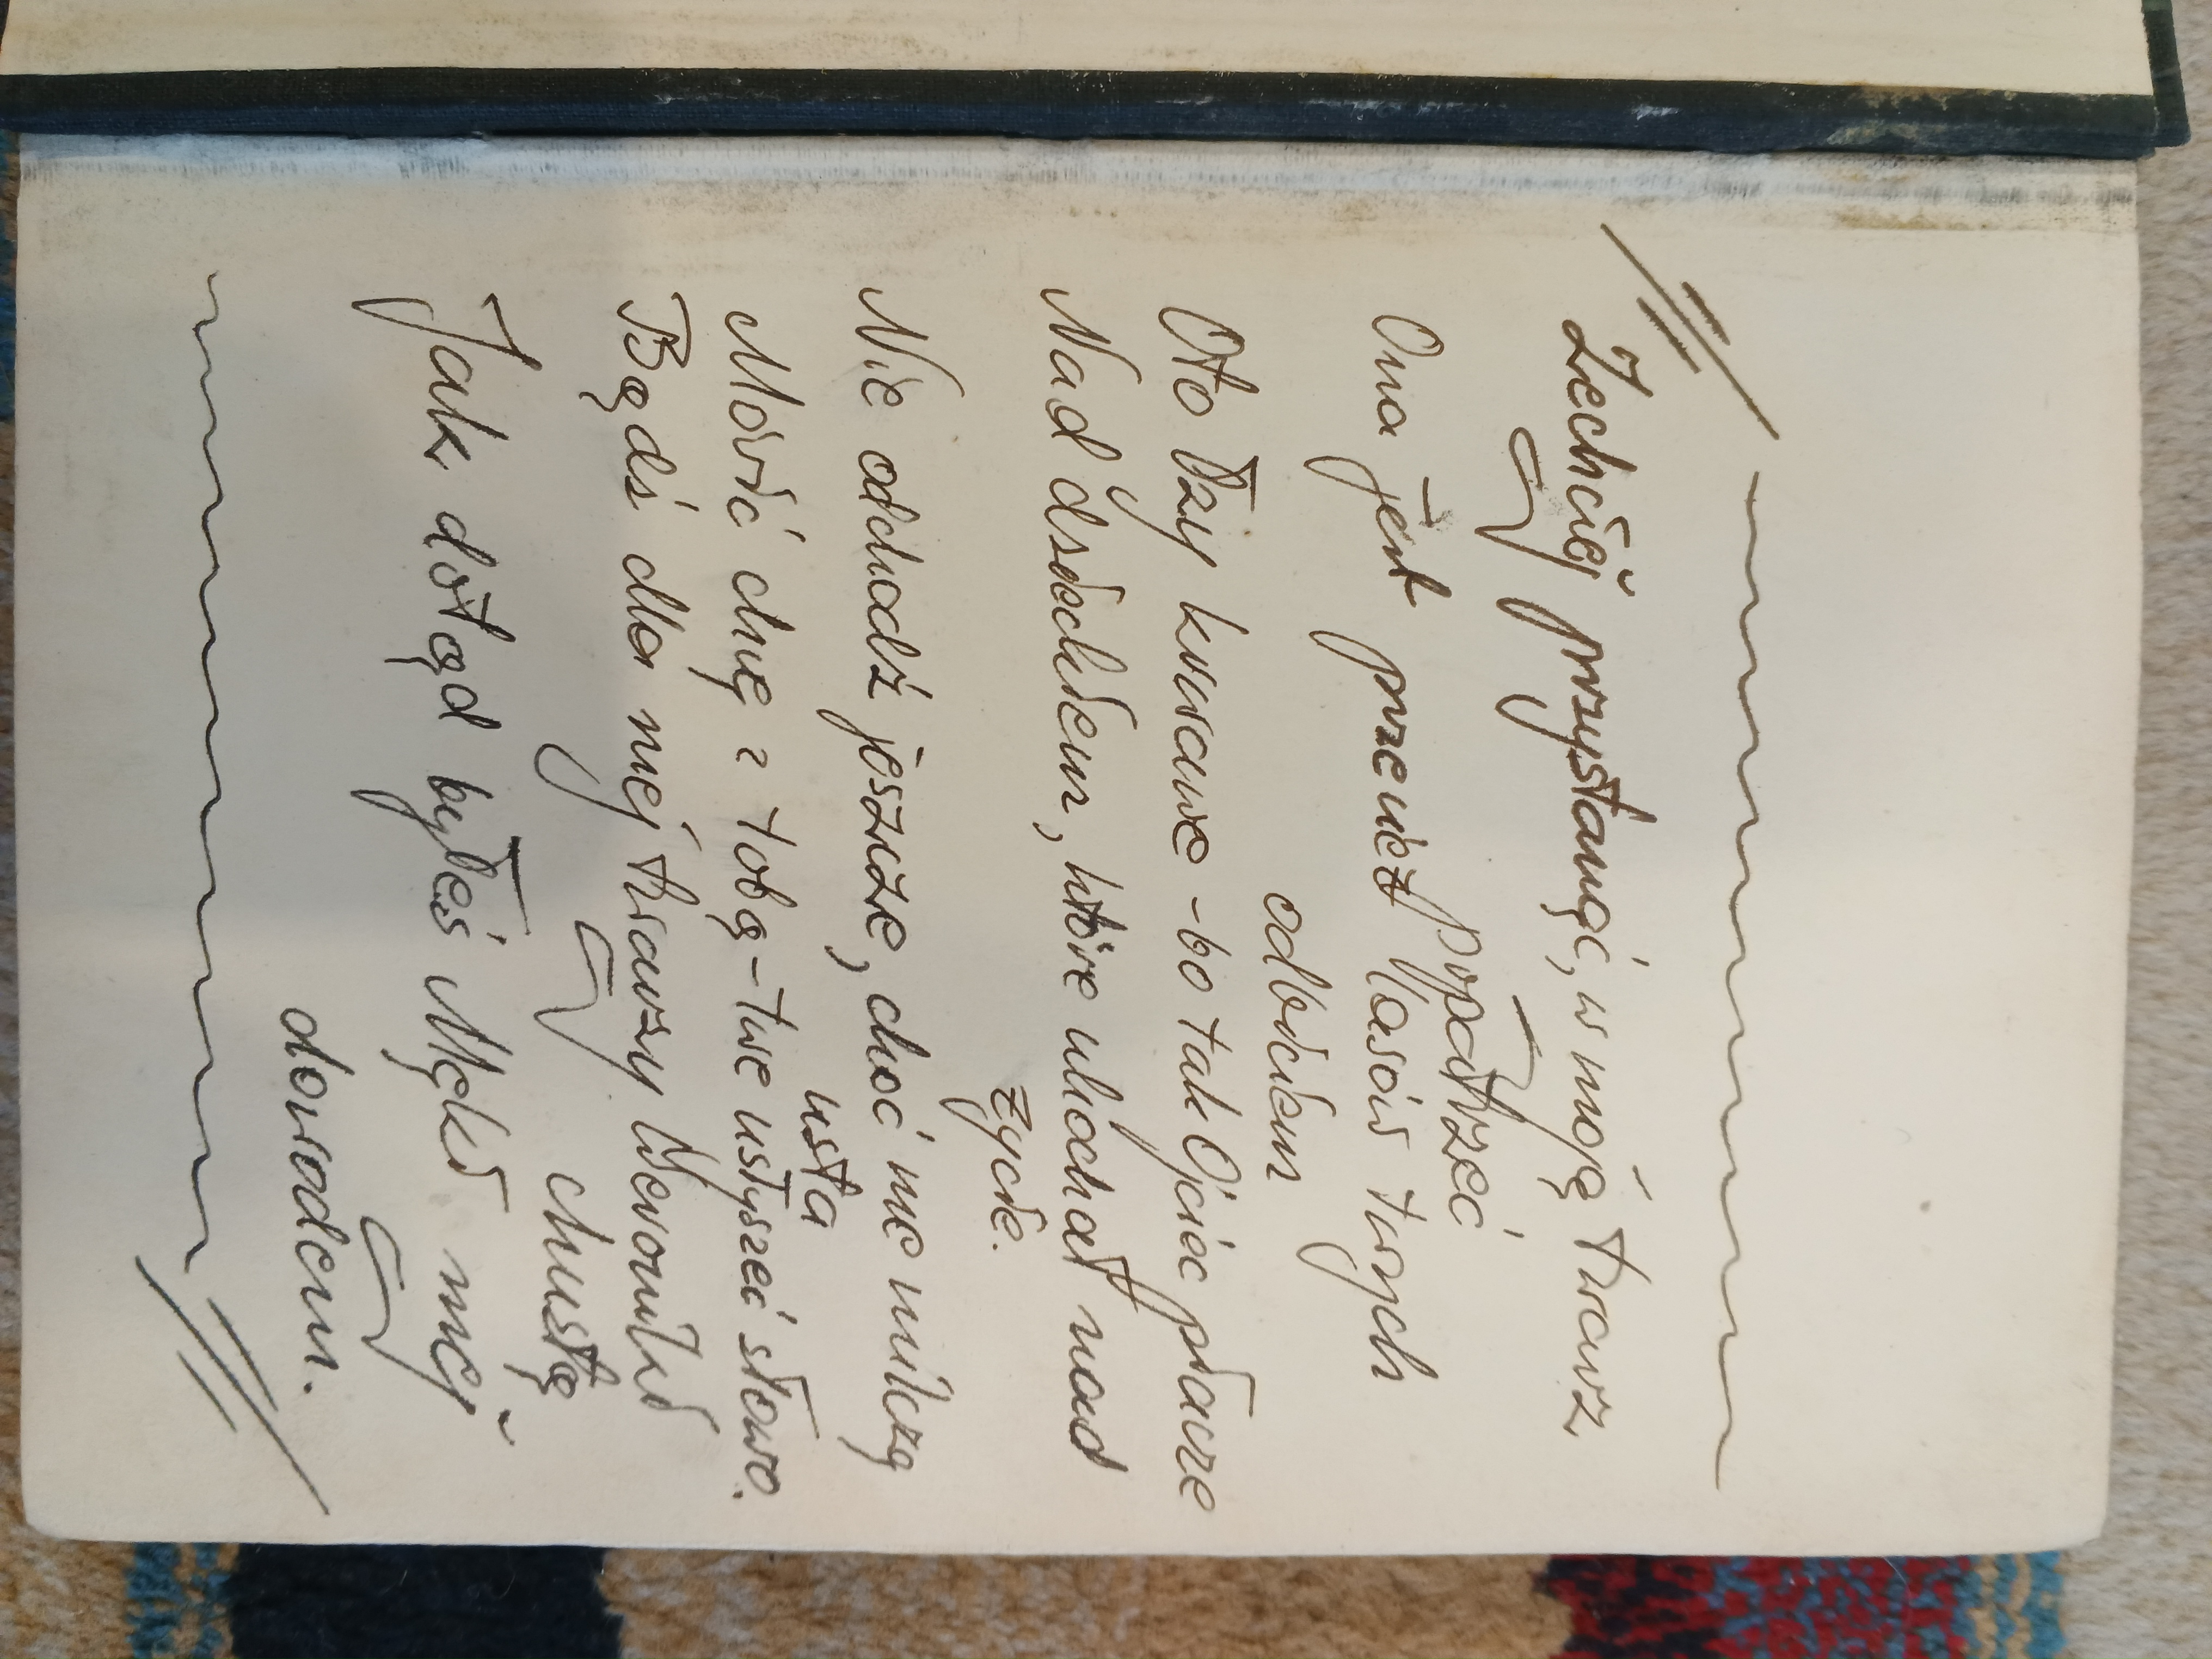 Zechciej przystanąć, w moją twarz
popatrzeć
Ona jest przecież Jasiu twych
odbiciem
Oto łzy krwawe - bo tak Ojciec płacze
Nad dzieckiem, które ukochał nad
życie.
Nie odchodź jeszcze, choć me milczą
usta
Mówić chcę z tobą - twe usłyszeć słowo.
Bądź dla mej twarzy Weroniki
chustą
Jak dotąd byłeś Męki mej
dowodem.